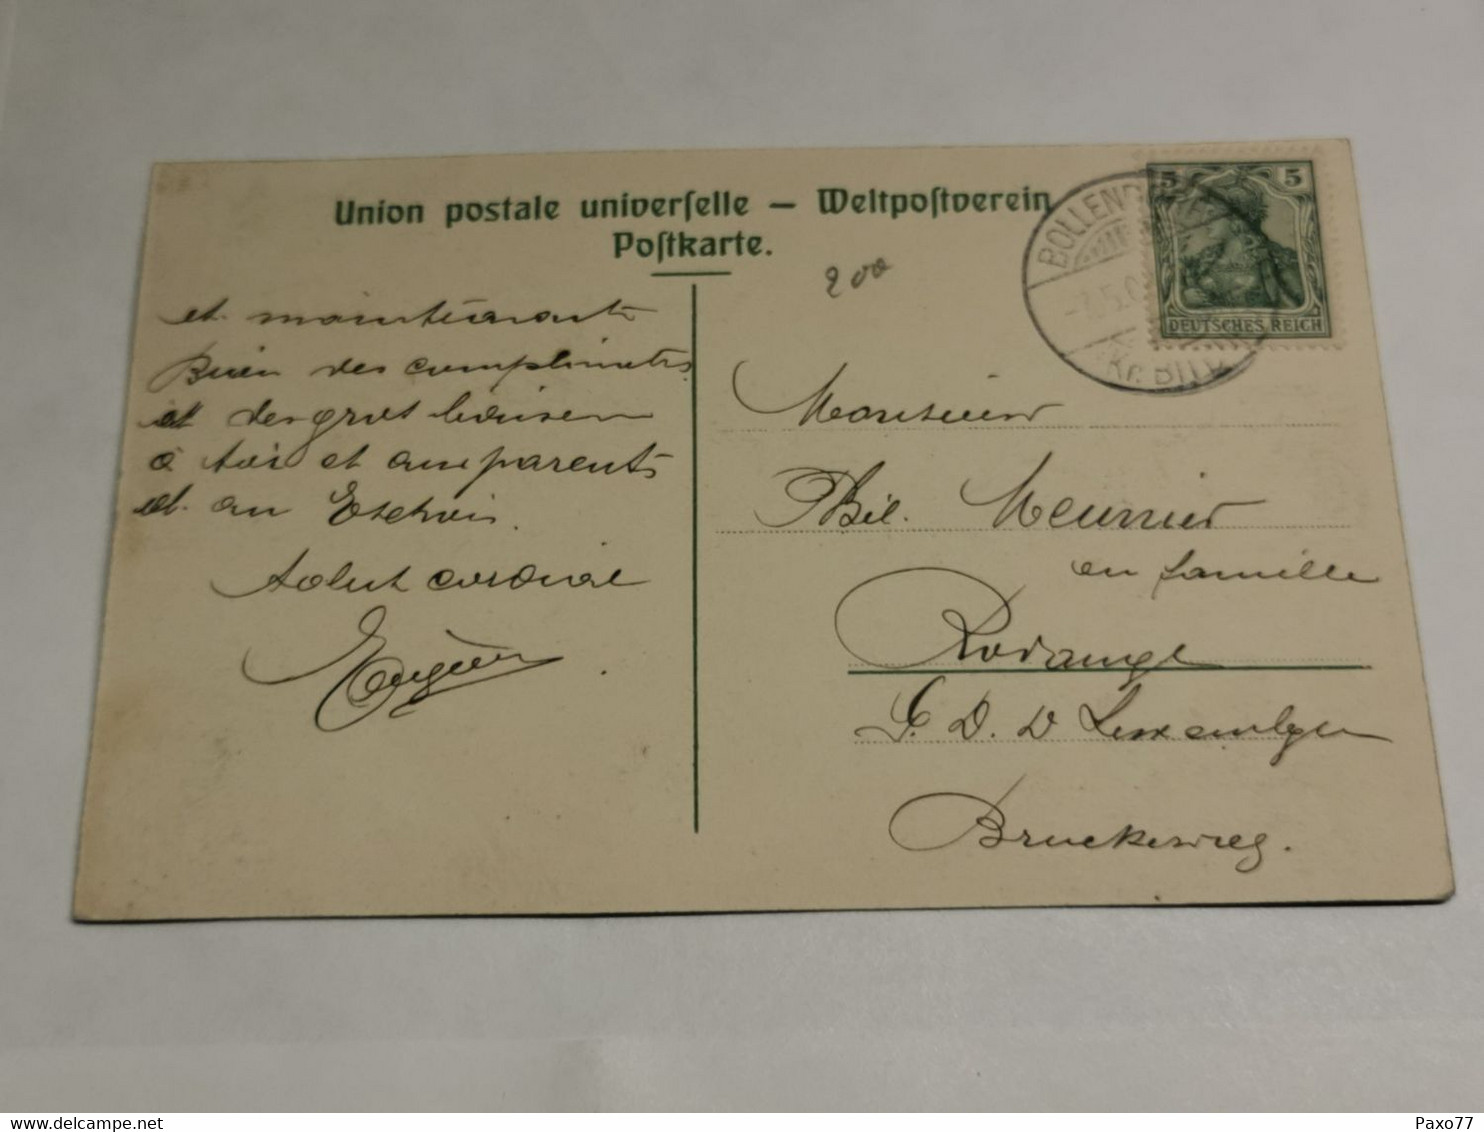 Union postale universelle — Weltpostverein
Postkarte.
200
5 5
DEUTSCHES REICH
BOLLENDORF
Kr. BITB
et maintenant
Bien des compliments
et des gros baisers
à toi et aux parents
et au
Salut cordial
Monsieur
Phil. Meunier
en famille
Rodange
G. D. D Luxemburg
Bruckerweg.
Paxo77